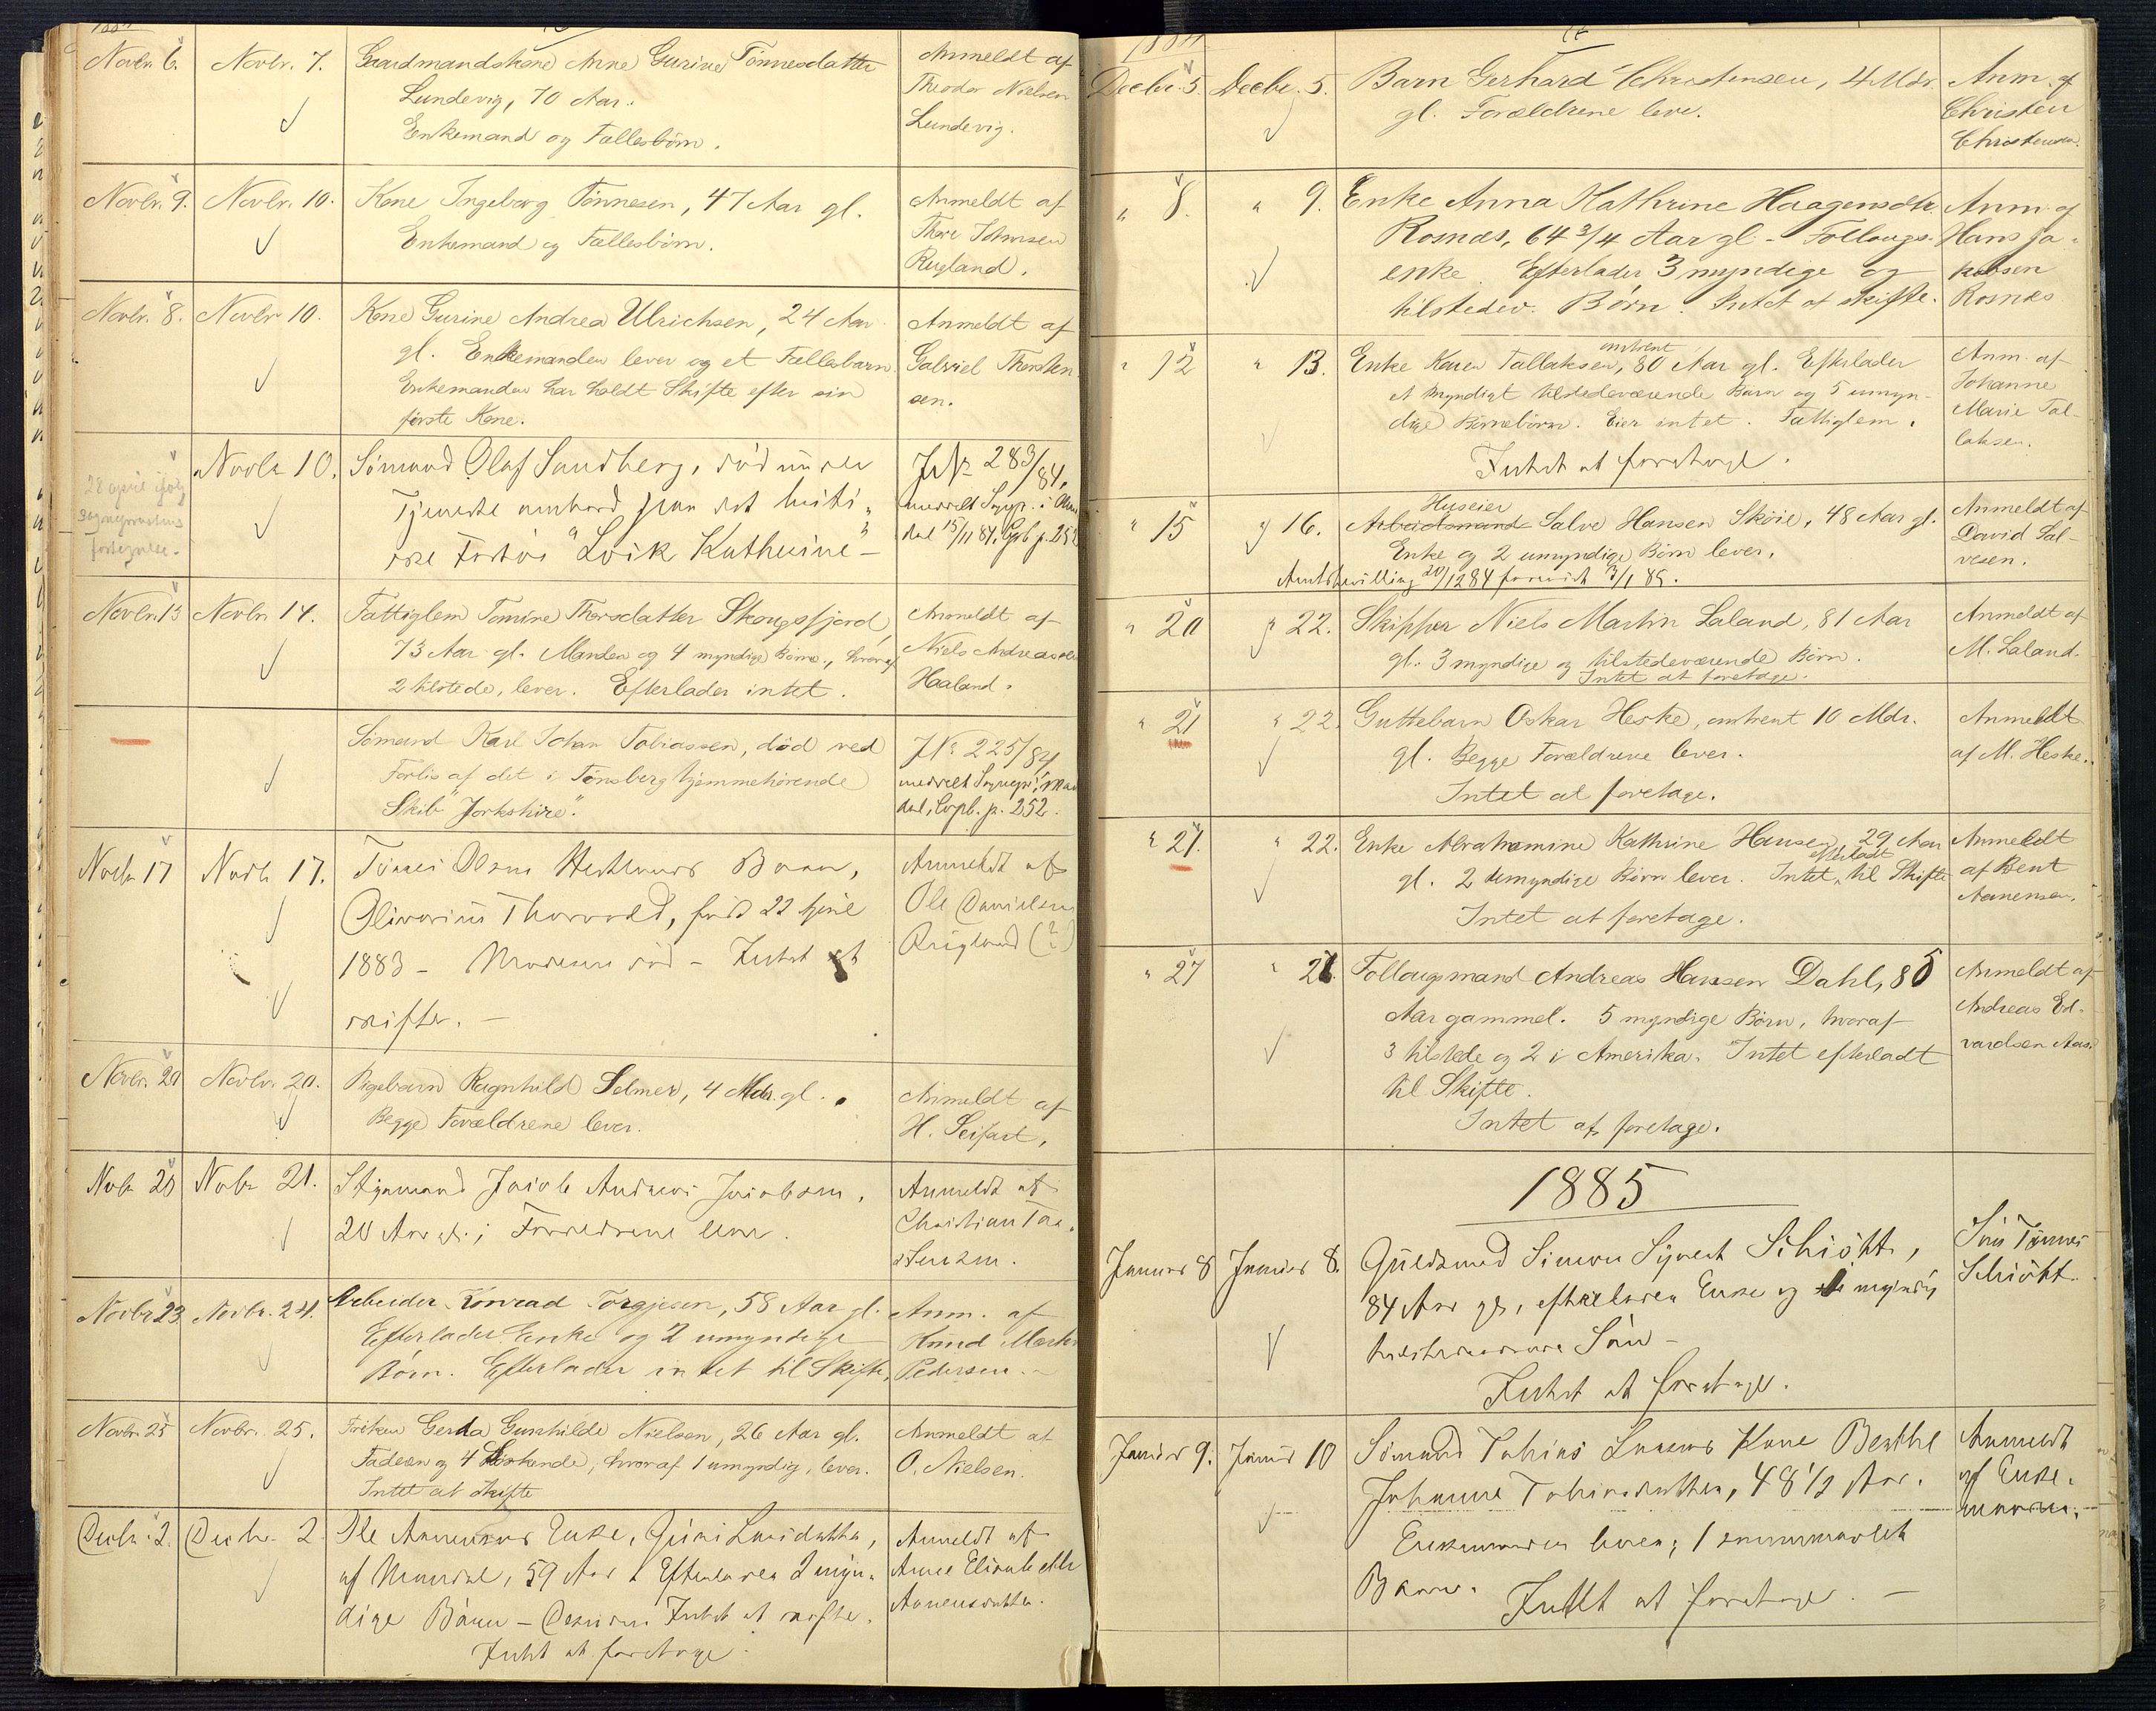 1884
Novbr. 6. Novbr. 7. Gaardmandskone Anne Gurine Tönnesdatter
Lundevig, 70 Aar.
Enkemand og Fællesbörn.
Anmeldt af
Theodor Nielsen
Lundevig.
Novbr. 9. Novbr. 10. Kone Ingeborg Tönnesen, 47 Aar gl.
Enkemand og Fællesbörn.
Anmeldt af
Thore Johnsen
Rugland.
Novbr. 8. Novbr 10. Kone Gurine Andrea Ulrichsen, 24 Aar
gl. Enkemanden lever og et Fællesbarn.
Enkemanden har holdt Skifte efter sin
förste Kone.
Anmeldt af
Gabriel Thorsten
sen.
28 april
Novbr 10. Sömand Olaf Sandberg, död
Tjeneste ombord paa det
ske Fartöi "Lvik Kathrine" –
JNr 283/84,
15/11 84,
Novbr. 13 Novbr. 14. Fattiglem Tomine Thorsdatter Skougsfjord,
73 Aar gl. Manden og 4 myndige Börn, hvoraf
2 tilstede, lever. Efterlader intet.
Anmeldt af
Niels Andreassen
Haaland.
Sömand Karl Johan Tobiassen, död ved
Forlis af det i Tönsberg hjemmehörende
Skib "Jorkshire".
JNr 225/84
p. 252.
Novbr 17 Novbr 17. Tönnes Olsens Barn,
Olivarius Thorvald, föd 22
1883 – Moderen död – Intet at
skifte. –
Anmeldt af
Ole Danielsen
Rugland (?)
Novbr. 20 Novbr. 20. Pigebarn Ragnhild Selmer, 4 Mdr. gl.
Begge Forældrene lever.
Anmeldt af
H. Seifart.
Nobr 20 Nobr 21. Styrmand Jacob Andreas Jacobsen,
20 Aar gl.; Forældrene lever.
Anmeldt af
Christian
Novbr 23 Novbr. 24. Arbeider Konrad Torgjesen, 58 Aar gl.
Efterlader Enke og 2 umyndige
Börn. Efterlader intet til Skifte.
Anm. af
Knud
Pedersen. –
Novbr. 25 Novbr. 25. Fröken Gerda Gunhilde Nielsen, 26 Aar gl.
Faderen og 4 Söskende, hvoraf 1 umyndig, lever.
Intet at skifte
Anmeldt af
O. Nielsen.
Decbr. 2. Decbr. 2 Ole Aanensens Enke, Guri Larsdatter,
af Mandal, 59 Aar. Efterlader 2 myn-
dige Börn – Intet at skifte.
Intet at foretage
Anmeldt af
Anne Elisabeth
Aanensdatter.
1884
17
Decbr. 5. Decbr. 5. Barn Gerhard Christensen, 4 Mdr.
gl. Forældrene leve.
Anm. af
Christen
Christensen.
" 8. " 9. Enke Anna Kathrine Haagensdtr
Rosnæs, 64 3/4 Aar gl – Follougs-
enke. Efterlader 3 myndige og
tilstedev. Börn. Intet at skifte.
Anm. af
Hans Ja-
kobsen
Rosnæs
" 12 " 13. Enke Karen Tallaksen, omtrent 80 Aar gl. Efterlader
et myndigt tilstedeværende Barn og 5 umyn-
dige Börnebörn. Eier intet. Fattiglem.
Intet at foretage.
Anm. af
Johanne
Marie Tal-
laksen.
Huseier
" 15 " 16. Arbeidsmand Salve Hansen Sköie, 48 Aar gl.
Enke og 2 umyndige Börn lever.
Amtsbevilling 20/12 84 3/1 85.
Anmeldt af
David Sal-
vesen.
" 20 " 22. Skipper Niels Martin Laland, 81 Aar
gl. 3 myndige og tilstedeværende Börn.
Intet at foretage.
Anmeldt af
M. Laland.
" 21 " 22. Guttebarn Oskar Heske, omtrent 10 Mdr.
gl. Begge Forældrene lever.
Intet at foretage.
Anmeldt
af M. Heske.
" 21. " 22. Enke Abrahamine Kathrine Hansen, 29 Aar
gl. 2 umyndige Börn lever. Intet efterladt til Skifte
Intet at foretage.
Anmeldt
af Bent
Aanensen.
" 27 " 28. Follougsmand Andreas Hansen Dahl, 85
Aar gammel. 5 myndige Börn, hvoraf
3 tilstede og 2 i Amerika. Intet efterladt
til Skifte.
Intet at foretage.
Anmeldt af
Andreas Ed-
vardsen Aas.
1885
Januar 8 Januar 8. Guldsmed Simon Schiött,
84 Aar gl., efterlader Enke og myndig
tilstedeværende Sön –
Intet at foretage.
Sön Tönnes
Schiött.
Januar 9. Januar 10 Sömand Tobias Larsens Kone Berthe
Johanne Tobiasdatter, 48 1/2 Aar.
Enkemanden lever; 1
Barn.
Intet at foretage. –
Anmeldt
af Enke-
manden.